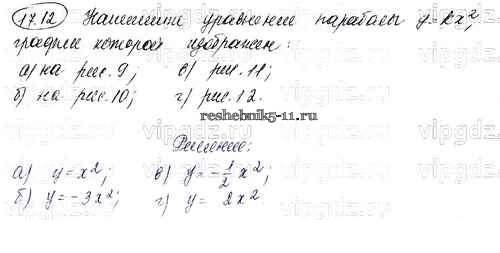 17.12 Напишите уравнение параболы y=kx²,
график которой изображен:
а) на рис. 9; в) рис. 11;
б) на рис. 10; г) рис. 12.
reshebnik5-11.ru
Решение:
а) y = x²; в) y = -1/2 x²;
б) y = -3x²; г) y = 2x²